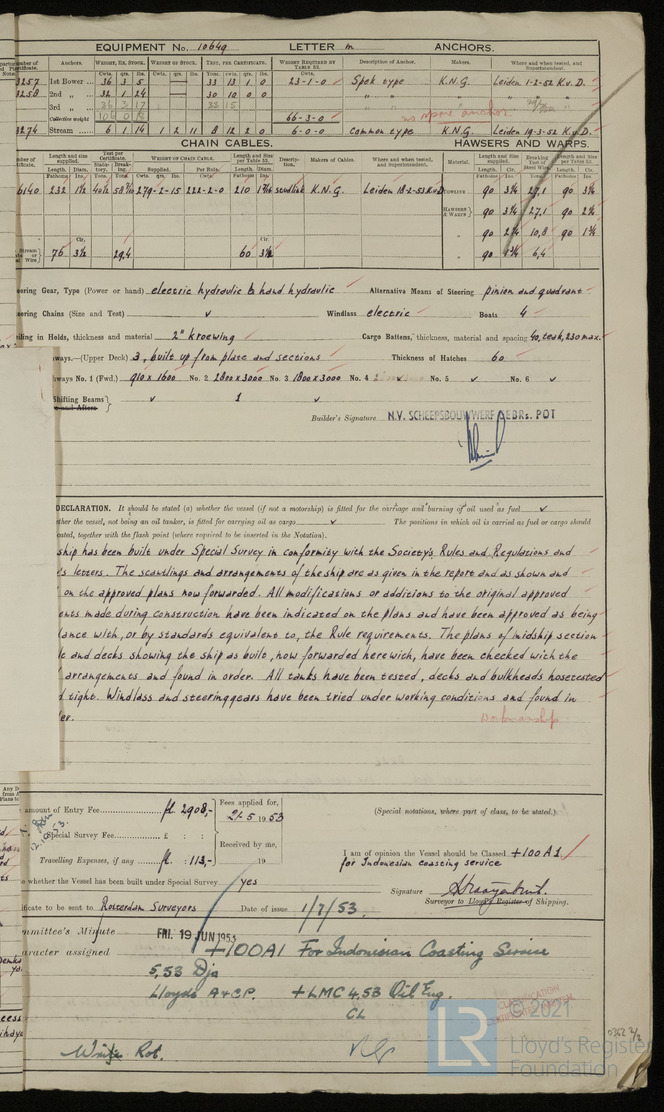 EQUIPMENT No. 10649 LETTER m ANCHORS.
Anchors. Weight, Ex. Stock. Weight of Stock. Test, per Certificate. Weight Required by Table 53. Description of Anchor. Makers. Where and when tested, and Superintendent.
3257 1st Bower 36 3 5 33 13 1 0 23-1-0 Spek type K.N.G. Leiden 1-2-52 K.v.D.
3258 2nd „ 32 1 24 30 10 0 0 „ „ „ „
3rd „ 36 3 17 33 15
Collective weight 106 0 18 66-3-0 no spare anchor.
3274 Stream 6 1 14 1 2 11 8 12 2 0 6-0-0 common type K.N.G. Leiden 19-3-52 K.v.D.
CHAIN CABLES. HAWSERS AND WARPS.
Length and size supplied. Test per Certificate. Weight on Chain Cable. Length and Size per Table 53. Description. Makers of Cables. Where and when tested, and Superintendent. Material. Length and Size supplied. Breaking Test of Steel Wire. Length and Size per Table 53.
6140 232 1½ 279-2-15 222-2-0 210 studlink K.N.G. Leiden 18-2-53 K.v.D. Towline 90 3¼ 27,1 90 3¼
Hawsers & Warps 90 3¼ 27,1 90 2½
„ 90 2¼ 10,8 90 1¾
76 3½ 29,4 60 3½ „ 90 1¾ 6,4
eering Gear, Type (Power or hand) electric hydraulic & hand hydraulic Alternative Means of Steering pinion and quadrant
eering Chains (Size and Test) v Windlass electric Boats 4
eiling in Holds, thickness and material 2" kroewing Cargo Battens, thickness, material and spacing 40, teak, 230 max.
ways.—(Upper Deck) 3, built up from plate and sections Thickness of Hatches 60
ways No. 1 (Fwd.) 910 x 1600 No. 2 1800 x 3000 No. 3 1800 x 3000 No. 4 v No. 5 v No. 6 v
Shifting Beams} v 1 v
e and Afters
Builder's Signature N.V. SCHEEPSBOUWWERF GEBRs. POT
DECLARATION. It should be stated (a) whether the vessel (if not a motorship) is fitted for the carriage and burning of oil used as fuel v
ther the vessel, not being an oil tanker, is fitted for carrying oil as cargo v The positions in which oil is carried as fuel or cargo should
cated, together with the flash point (where required to be inserted in the Notation).
ship has been built under Special Survey in conformity with the Society's Rules and Regulations and
's letters. The scantlings and arrangements of the ship are as given in the report and as shown and
on the approved plans now forwarded. All modifications or additions to the original approved
ents made during construction have been indicated on the plans and have been approved as being
dance with, or by standards equivalent to, the Rule requirements. The plans of midship section
le and decks showing the ship as built, now forwarded herewith, have been checked with the
arrangements and found in order. All tanks have been tested, decks and bulkheads hosetested
d tight. Windlass and steeringgears have been tried under working conditions and found in
er.
Workmanship
amount of Entry Fee fl. 2908,- Fees applied for, 21-5 1953 (Special notations, where part of class, to be stated.)
Special Survey Fee £ : :
Received by me,
Travelling Expenses, if any fl. : 113,- 19
I am of opinion the Vessel should be Classed +100 A1
for Indonesian coasting service
whether the Vessel has been built under Special Survey yes
Signature
Surveyor to Lloyd's Register of Shipping.
ificate to be sent to Rotterdam Surveyors Date of issue 1/7/53.
mmittee's Minute FRI. 19 JUN 1953
aracter assigned +100A1 For Indonesian Coasting Service
5,53 Dja
Lloyds A & C.P. +LMC 4.53 Oil Eng.
CL
Write Rot.
© 2021
LR
Lloyd's Register
Foundation